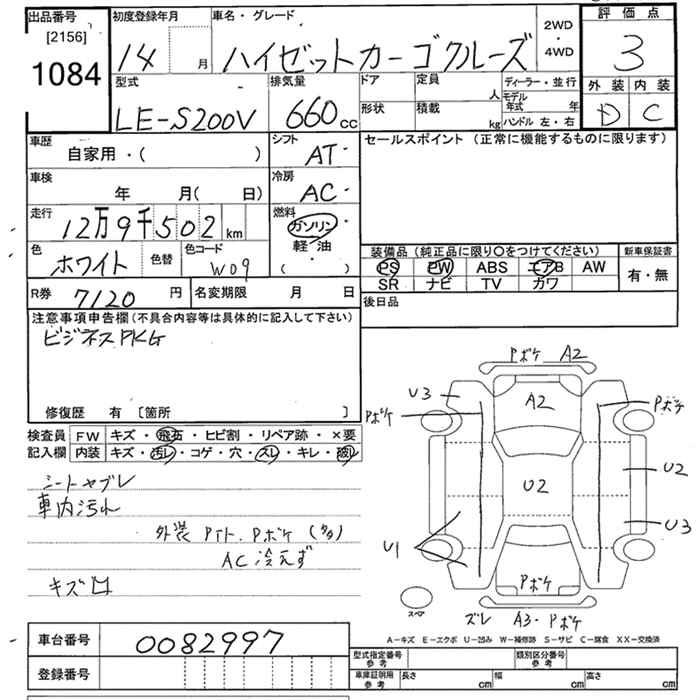 出品番号 初度登録年月 車名・グレード 2WD・4WD 評価点
[2156]
1084 14 月 ハイゼットカーゴクルーズ 3
型式 排気量 ドア 定員 人 ディーラー・並行 外装 内装
LE-S200V 660cc 形状 積載 kg モデル年式 年 ハンドル 左・右 D C
車歴 自家用・( ) シフト AT・ セールスポイント (正常に機能するものに限ります)
車検 年 月( 日) 冷房 AC・
走行 12万9千502km 燃料 ガソリン
軽・油
( )
色 ホワイト 色替 色コード W09 装備品 (純正品に限り○をつけてください) 新車保証書
PS PW ABS エアB AW 有・無
SR ナビ TV ガワ
R券 7120 円 名変期限 月 日 後日品
注意事項申告欄 (不具合内容等は具体的に記入して下さい)
ビジネスPKG
修復歴 有 [箇所 ]
検査員 FW キズ・飛石・ヒビ割・リペア跡・×要
記入欄 内装 キズ・汚レ・コゲ・穴・スレ・キレ・破レ
シートヤブレ
車内汚れ
外装 Pイト、Pボケ (多)
AC冷えず
キズ凹
Pボケ A2
U3 A2
Pボケ Pボケ
U2 U2
U3
U1
Pボケ
スペア
ズレ A3・Pボケ
A-キズ E-エクボ U-凹み W-補修跡 S-サビ C-腐食 XX-交換済
車台番号 0082997
登録番号
型式指定番号 参考 類別区分番号 参考
車庫証明用 参考 長さ cm 幅 cm 高さ cm